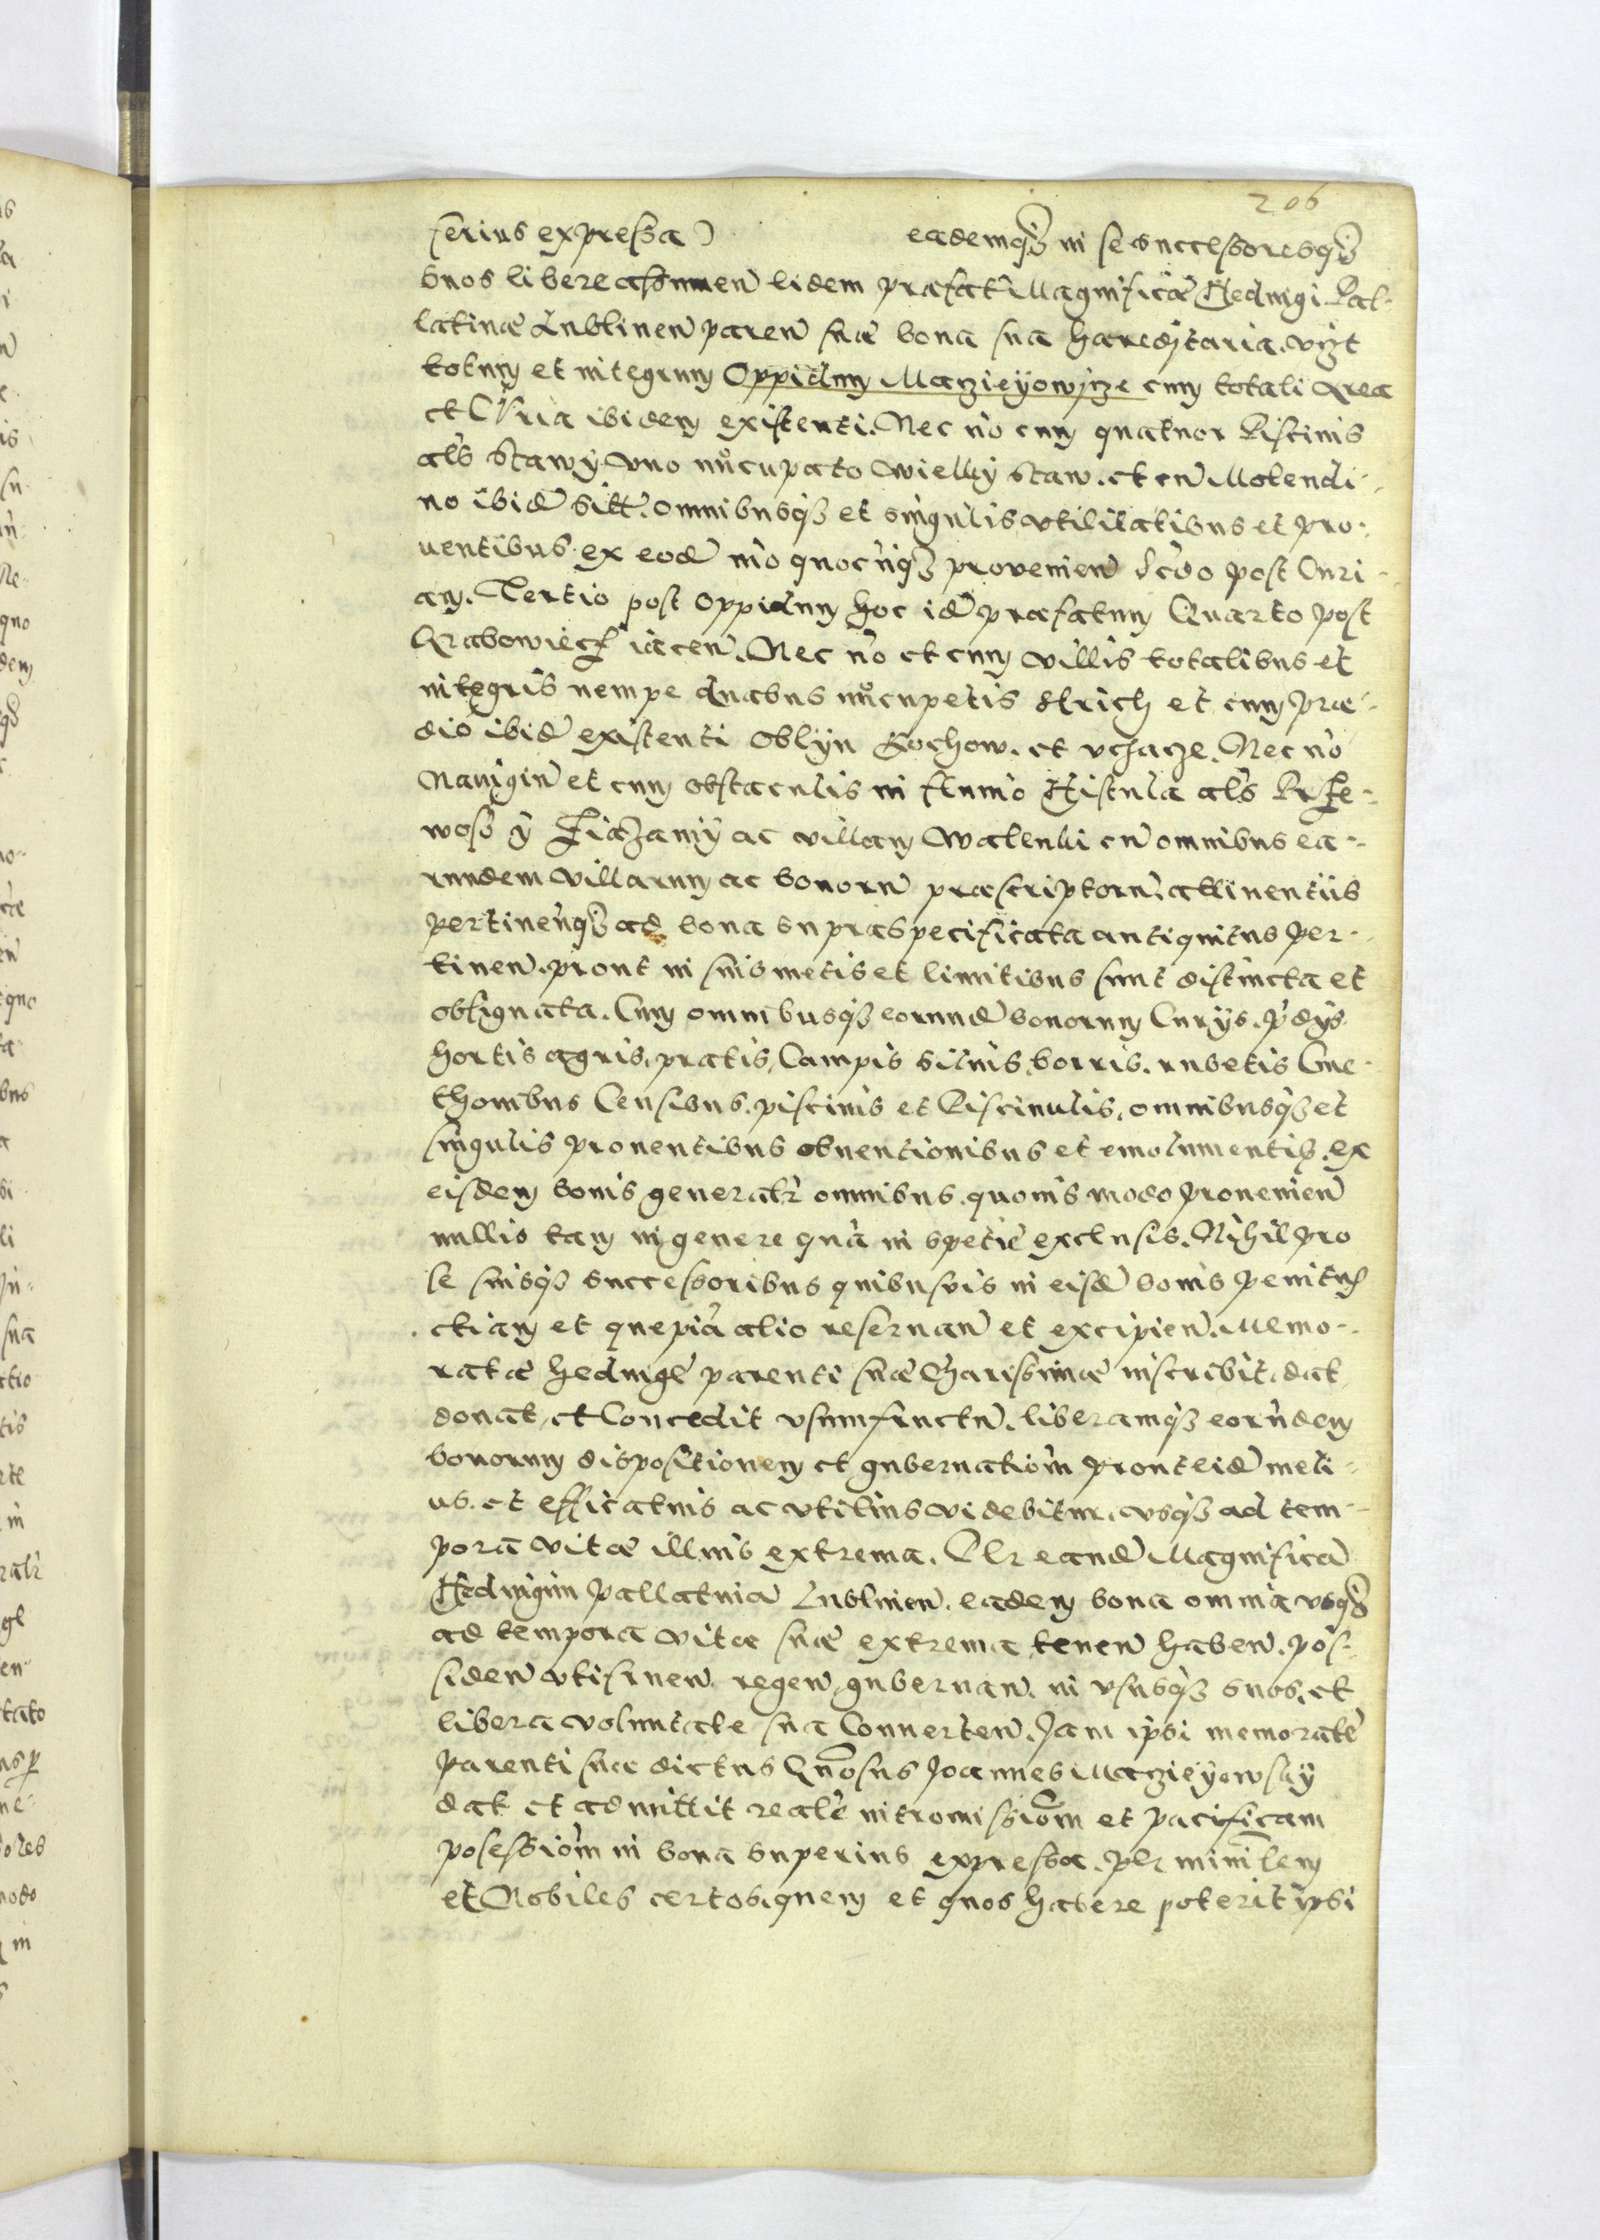 206
serius expressa) eademqꝫ in se successoresqꝫ
suos libere assumen̄ Eidem præfatæ Magnificæ Hedvigi Pal-
latinæ Lublinen̄ paren̄ suæ bona sua hæreditaria. vizt
totum et integrum Oppidum Maczieÿowÿcze cum totali Area
et CVria ibidem existenti. Nec nō cum quatuor Piscinis
als Stawÿ. vno nūcupato Wielkÿ Staw. et cū Molendi-
no ibid̄ sitt. omnibusqꝫ et singulis vtilitatibus et pro-
uentibus ex eod̄ mō quocūqꝫ prouenien̄ Scđo post Curi-
am. Tertio post Oppidum hoc id̄ præfatum Quarto post
Grabowiecz iacen̄. Nec nō et cum villis totalibus et
integris nempe duabus nūcupetis Strich et cum præ-
dio ibid̄ existenti Oblÿn Kochow. et vchacze. Nec nō
Nauigiū et cum obstaculis in fluuio Vistula als Prze-
wosz ÿ Hiazamÿ ac villam Walenki cū omnibus ea-
rundem villarum ac bonorū præscriptorū. attinentiis
pertinen̄qꝫ ad bona supraspecificata antiquitus per-
tinen̄. prout in suis metis et limitibus sunt distincta et
obsignata. Cum omnibusqꝫ eorund̄ bonorum Curÿs. p̄dÿs
hortis agris, pratis, Campis siluis, borris. rubetis Cme-
thonibus Censibus. piscinis et Piscinulis, omnibusqꝫ et
singulis prouentibus obuentionibus et emolumentis. ex
eisdem bonis generalr omnibus. quouis modo prouenien̄
nullis tam in genere quā in spetie exclusis. Nihil pro
se suisqꝫ successoribus quibusuis in eisd̄ bonis penitus
etiam et quepiā alio reseruan̄ et excipien̄. Memo-
ratæ hedvigi parenti suæ Charissimæ inscribit, dat
donat, et Concedit vsumfructū. liberamqꝫ eorūdem
bonorum dispositionem et gubernatiom̄ prout eid̄ meli-
us. et efficatius ac vtilius videbitur. vsqꝫ ad tem-
pora vitæ illius extrema. Per eand̄ Magnificā
Hedvigim Pallatinā Lublinen̄. eadem bona omnia vsqꝫ
ad tempora vitæ suæ extrema tenen̄ haben̄. pos-
siden̄ vtifruen̄ regen̄ gubernan̄. in vsusqꝫ suos. et
libera voluntate sua Conuerten̄. Jam ipsi memoratæ
parenti suæ dictus Gn̄osus Joannes Maczieÿowskÿ
dat et admittit realē intromissiom̄ et pacificam
posessiom̄ in bona superius expressa. per min̄rlem
et Nobiles certos. quem et quos habere poterit ipsi